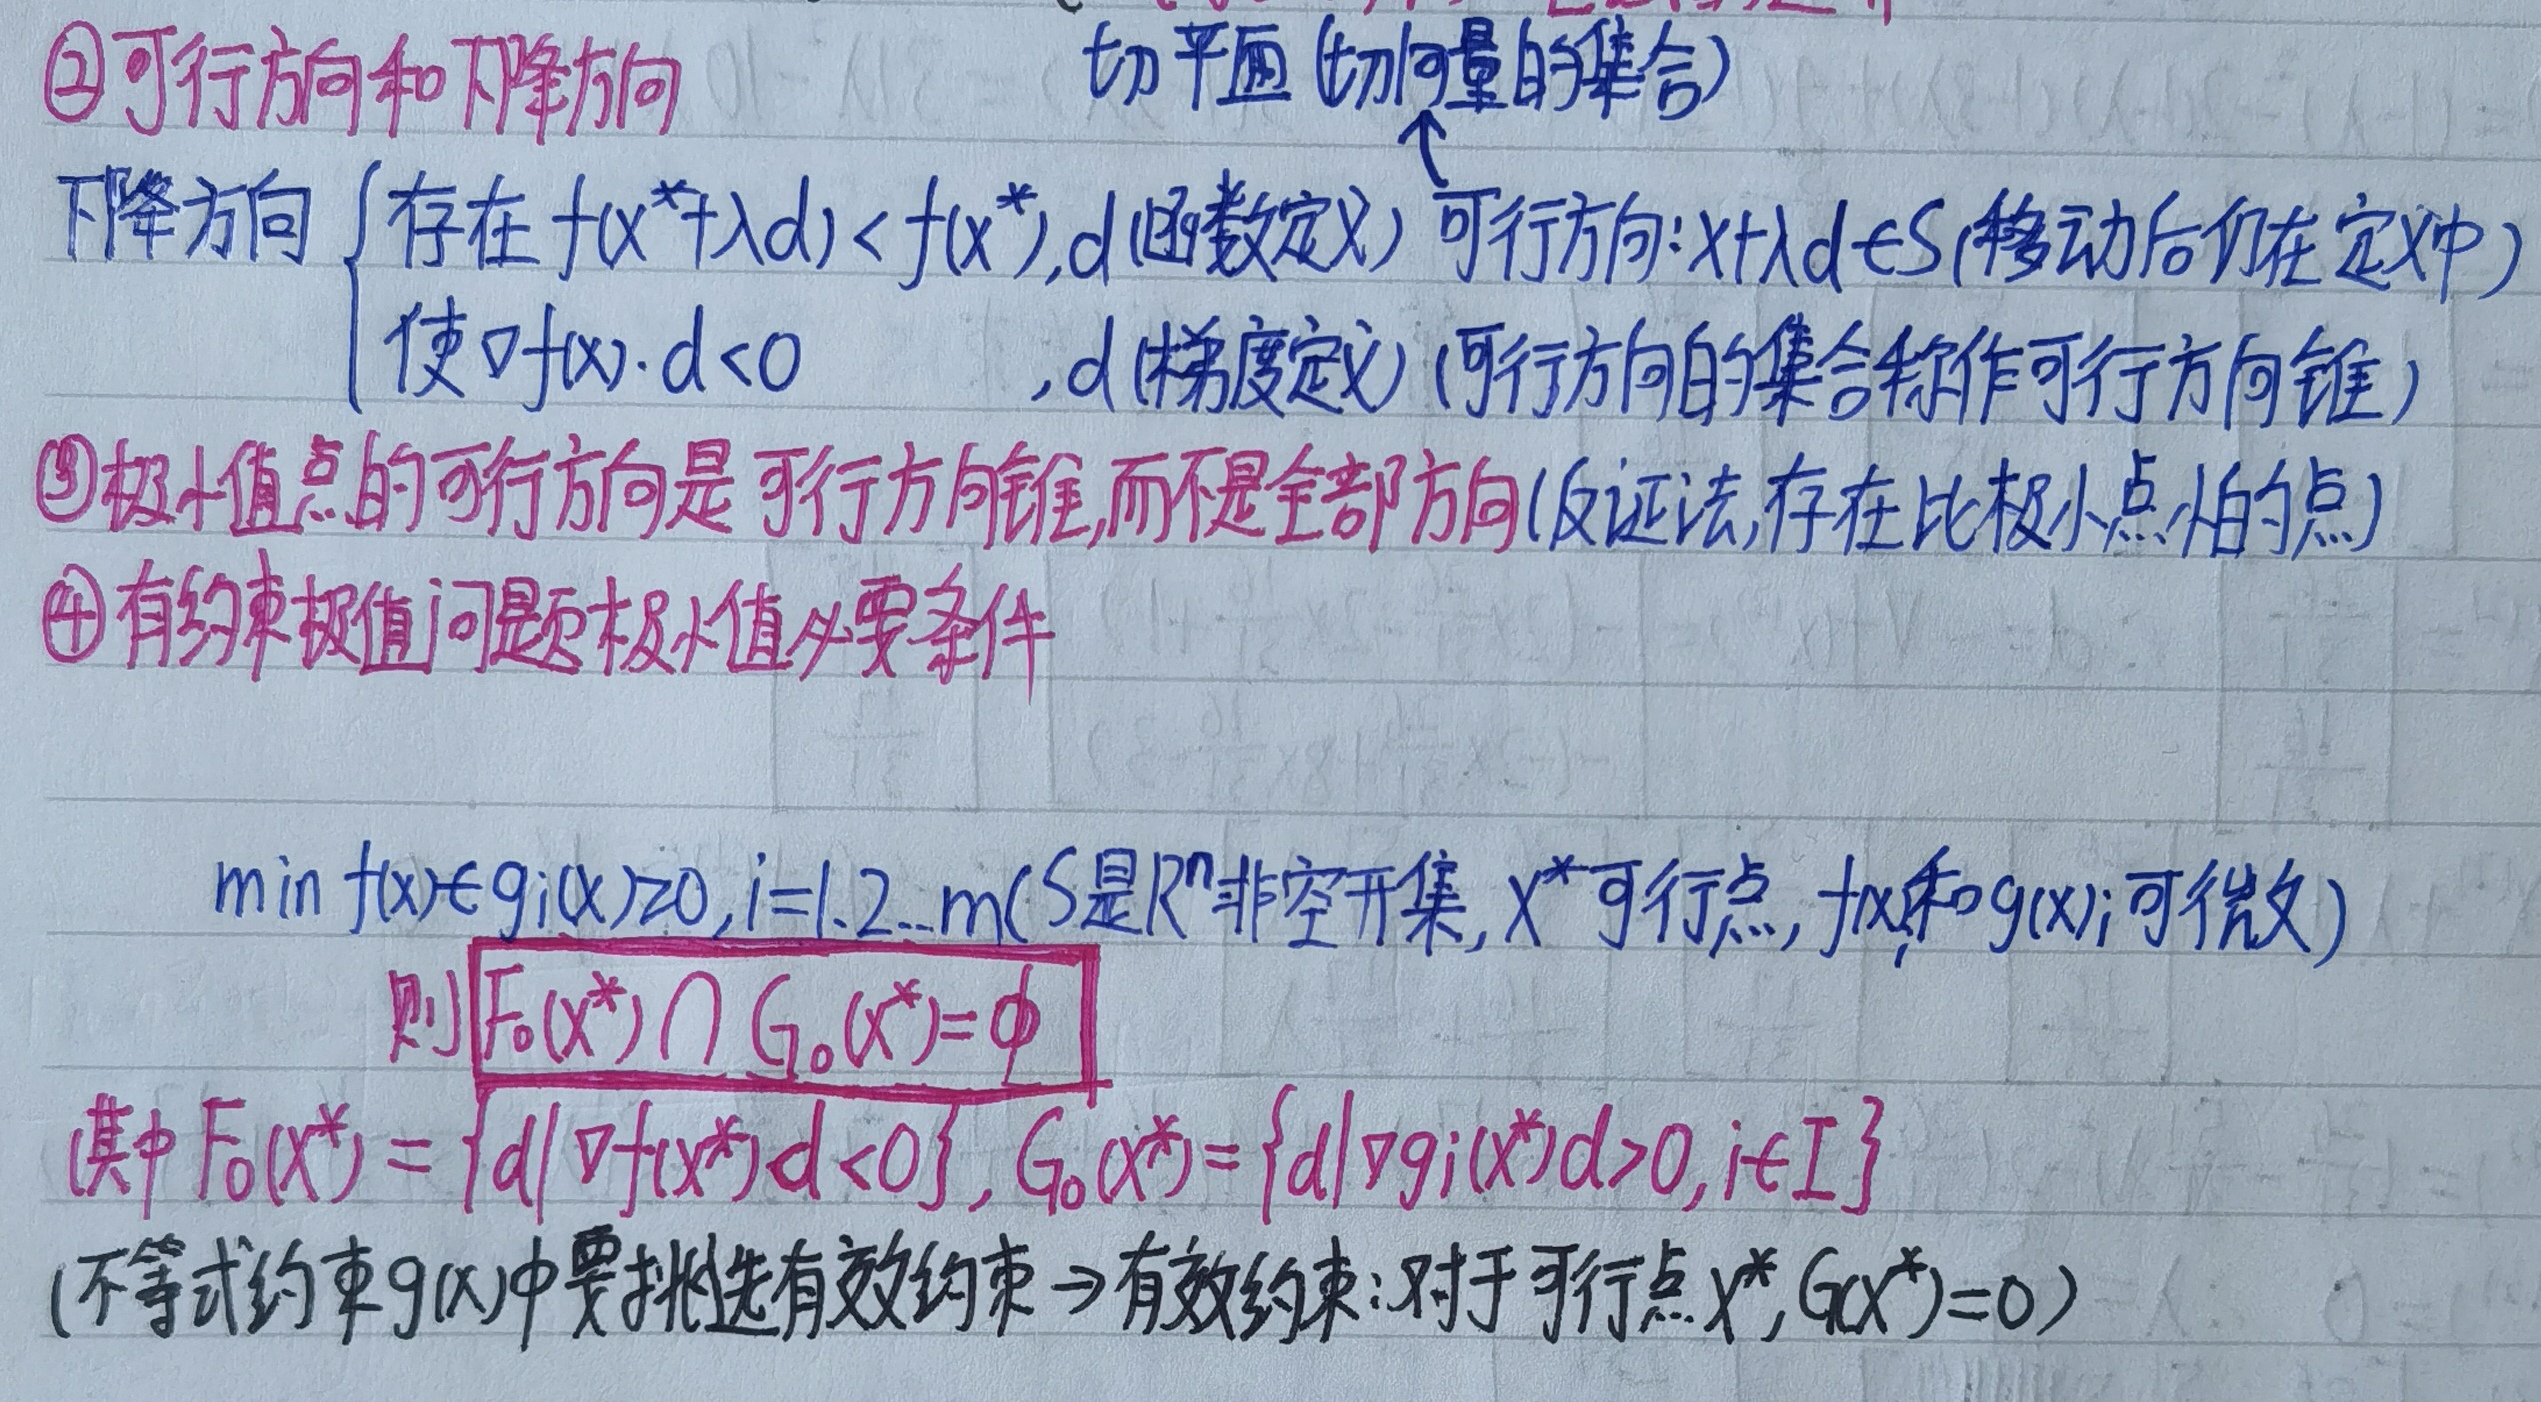 ②可行方向和下降方向
切平面(切向量的集合)
↑
下降方向{存在f(x*+λd)<f(x*),d(函数定义) 可行方向:x+λd∈S(移动后仍在定义中)
使∇f(x)·d<0 ,d(梯度定义)(可行方向的集合称作可行方向锥)
③极小值点的可行方向是可行方向锥,而不是全部方向(反证法,存在比极小点小的点)
④有约束极值问题极小值必要条件
min f(x)∈gi(x)≥0,i=1.2...m(S是Rⁿ非空开集,x*可行点,f(x)和g(x)i可微)
则F₀(x*)∩G₀(x*)=φ
(其中F₀(x*)={d|∇f(x*)d<0},G₀(x*)={d|∇gi(x*)d>0,i∈I}
(不等式约束g(x)中要挑选有效约束→有效约束:对于可行点x*,G(x*)=0)